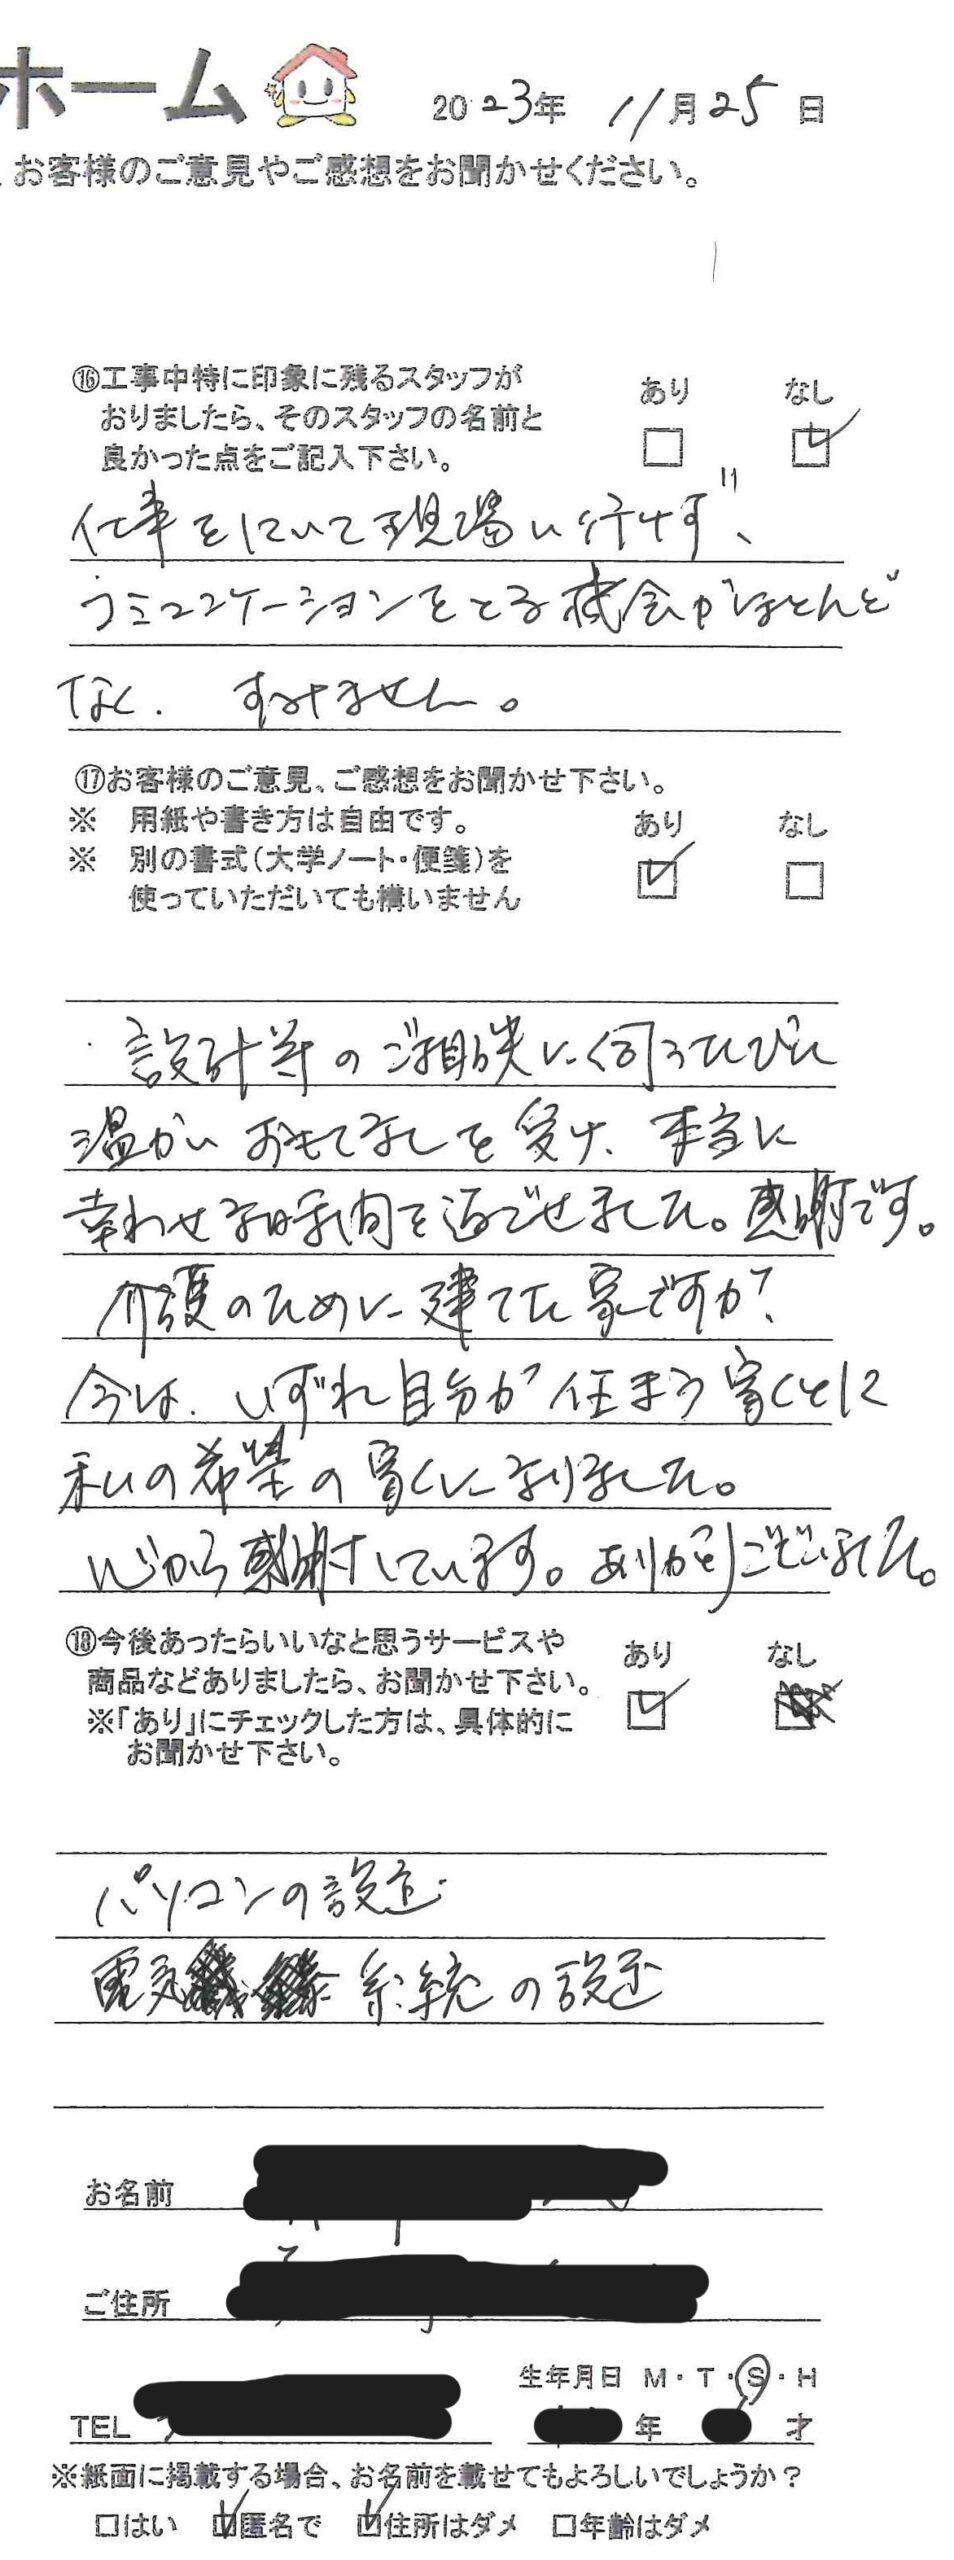 ホーム
2023年 11月25日
、お客様のご意見やご感想をお聞かせください。
⑯工事中特に印象に残るスタッフが
おりましたら、そのスタッフの名前と
良かった点をご記入下さい。
あり なし
仕事をしていて現場に行けず、
コミュニケーションをとる機会がほとんど
なく、すみません。
⑰お客様のご意見、ご感想をお聞かせ下さい。
※ 用紙や書き方は自由です。
※ 別の書式(大学ノート・便箋)を
使っていただいても構いません
あり なし
設計等のご相談に伺うたびに
温かいおもてなしを受け、本当に
幸わせな時間を過ごせました。感謝です。
介護のために建てた家ですが、
今は、いずれ自分が住まう家として
私の希望の家になりました。
心から感謝しています。ありがとうございました。
⑱今後あったらいいなと思うサービスや
商品などありましたら、お聞かせ下さい。
※「あり」にチェックした方は、具体的に
お聞かせ下さい。
あり なし
パソコンの設定
電気系統の設定
お名前
ご住所
生年月日 M・T・S・H
TEL 年 才
※紙面に掲載する場合、お名前を載せてもよろしいでしょうか?
□はい □匿名で □住所はダメ □年齢はダメ